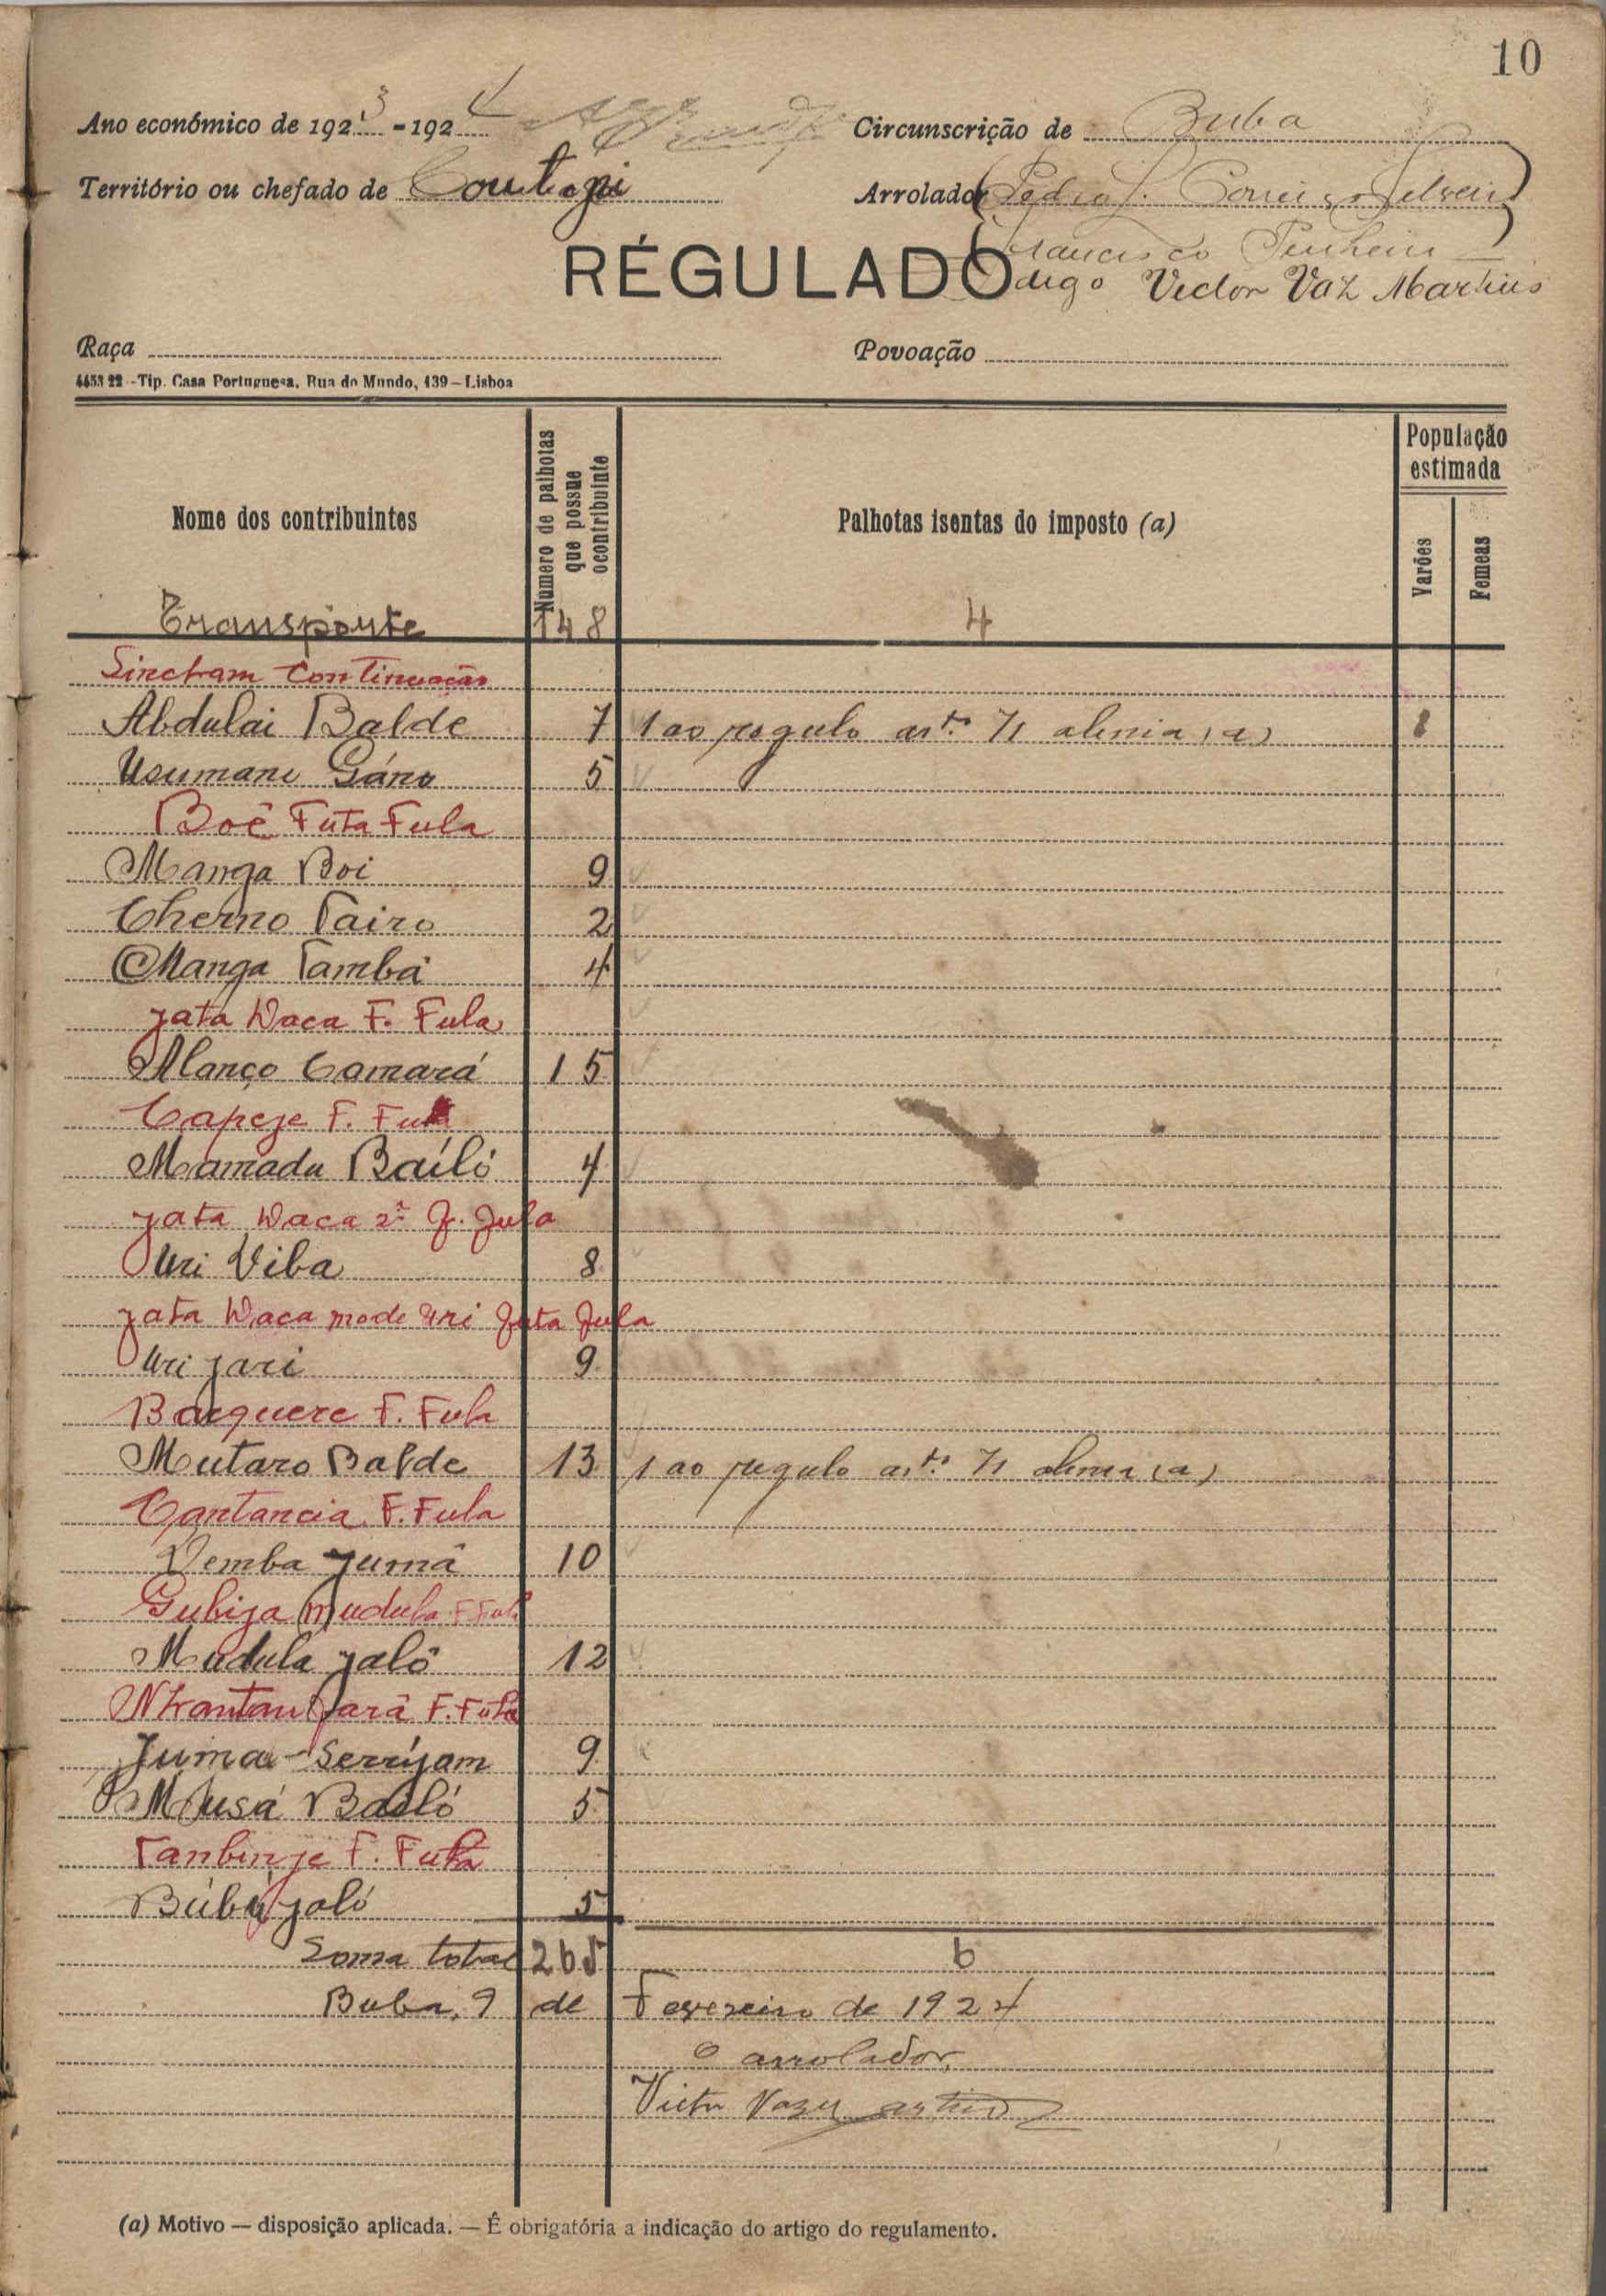 10
Ano económico de 1923-1924
Circunscrição de Buba
Território ou chefado de
Arrolador (Pedro Correia
Francisco Pinheiro
digo Victor Vaz Martins
RÉGULADO
Raça
Povoação
4453 22 - Tip. Casa Portuguesa, Rua do Mundo, 139 - Lisboa
Nome dos contribuintes
Numero de palhotas que possue o contribuinte
Palhotas isentas do imposto (a)
População estimada
Varões
Femeas
Transporte 148 4
Sincham Continuação
Abdulai Balde 7 1 ao regulo alinia (a)
Usumane Gáno 5
Boê Futa Fula
Manga Boi 9
Cherno Tairo 2
Manga Tambá 4
jata Waca F. Fula
Alanço Camará 15
Capeje F. Fula
Mamadu Bailó 4
jata Waca 2ª F. Fula
Uri Viba 8
jata Waca mode Uri Futa Fula
Uri jari 9
Bacquere F. Fula
Mutaro Balde 13 1 ao regulo alinea (a)
Cantancia F. Fula
jumá 10
Gubija Mudula F. Fula
Mudula jaló 12
jará F. Fula
Juma Serrijam 9
Musá Bailó 5
Tanbinje F. Fula
Búbú jaló 5
Soma total 265 6
Buba, 9 de Fevereiro de 1924
O arrolador
Victor Vaz Martins
(a) Motivo — disposição aplicada. — É obrigatória a indicação do artigo do regulamento.